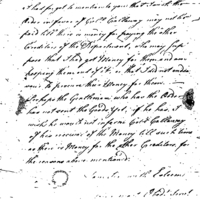 I had forgot to mention to you that I wish the
Order in favor of Genl. Gallaway may not be
paid till there is money for paying the other
Creditors of the Department, who may sup
pose that I had got Money for them and am
keeping them out of it, as that I did not endea
vour to procure their Money for them.
Perhaps the Gentleman who has the Order
has not sent the Genl. yet, if he has, I
wish he may not inform Genl. Gallaway
of his receiver of the Money till such time
as there is Money for the other Creditors, for
the reasons above mentioned.
I am Sir with Esteem